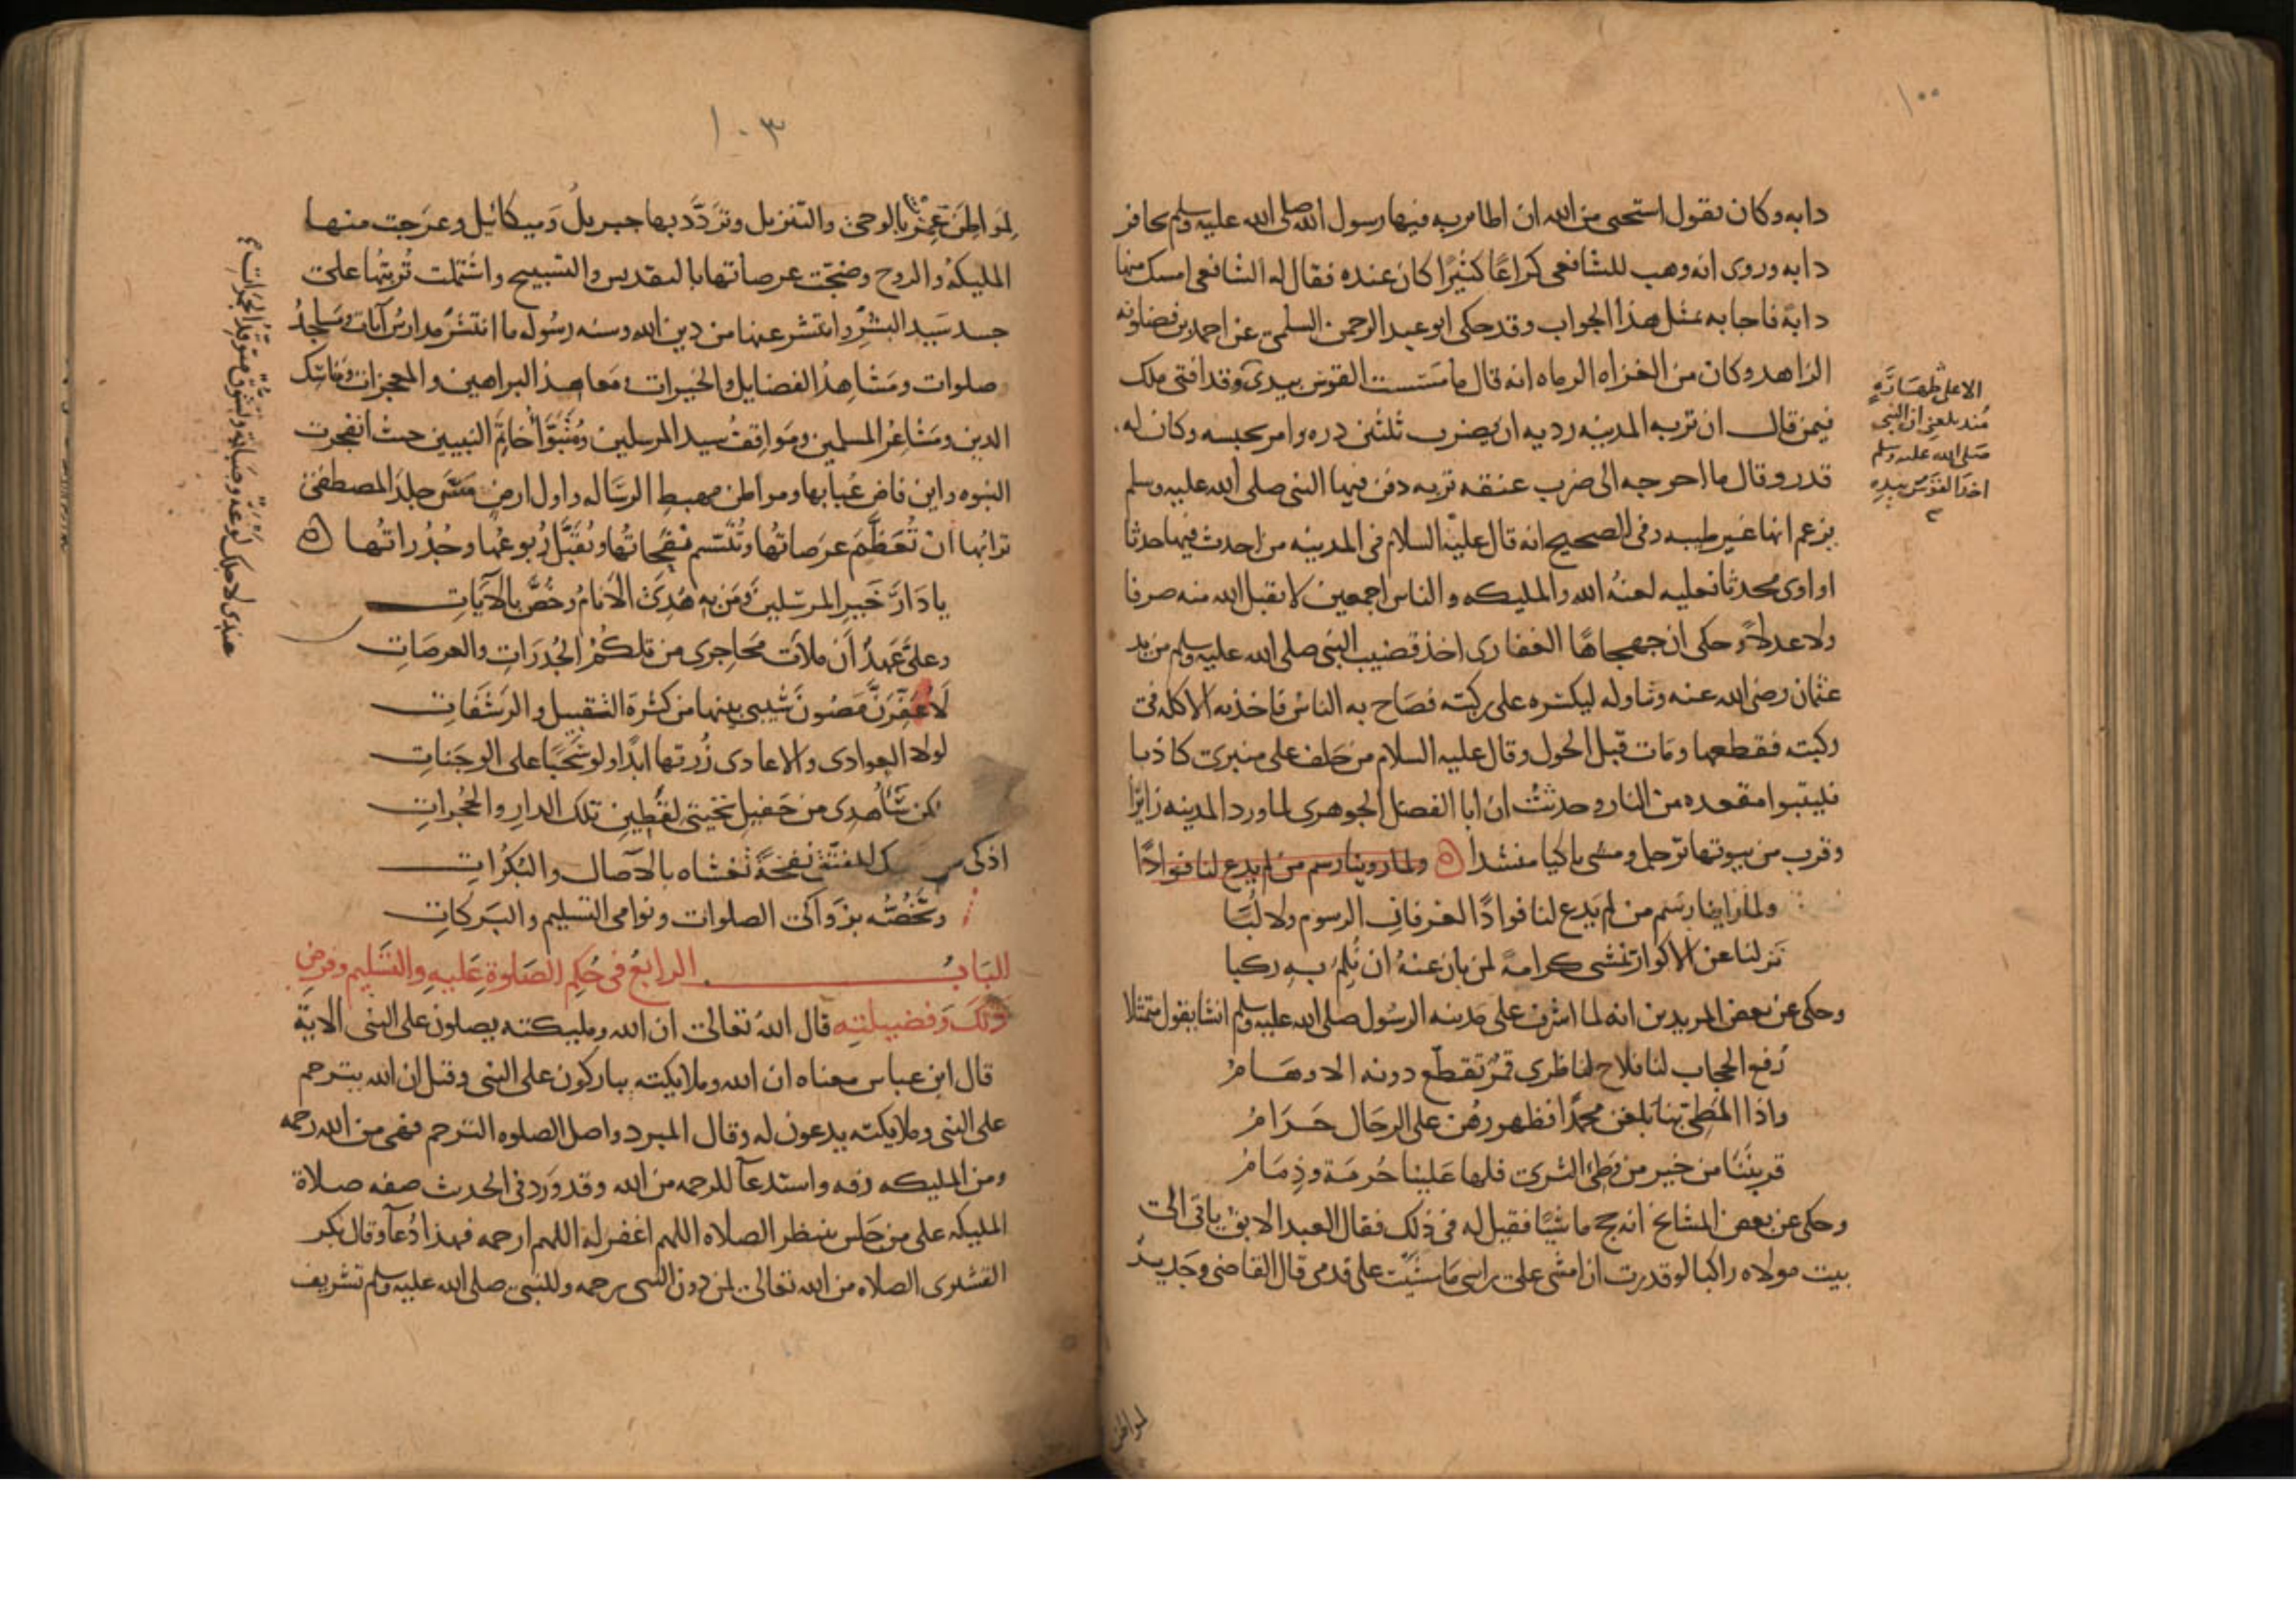 ١٠٠
دابه وكان يقول استحيى من الله ان اطا تربه فيها رسول الله صلى الله عليه وسلم بحافر
دابه وروى انه وهب للشافعي كراعًا كثيرًا كان عنده فقال له الشافعي امسك منها
دابة فاجابه بمثل هذا الجواب وقد حكى ابو عبد الرحمن السلمي عن احمد بن فضلويه
الزاهد وكان من الغزاه الرماه انه قال ما مسست القوس بيدي وقد افتى ملك
فيمن قال ان تربه المدينه رديه ان يضرب ثلثين دره وامر بحبسه وكان له
قدر وقال ما احوجه الى ضرب عنقه تربه دفن فيها النبي صلى الله عليه وسلم
يزعم انها غير طيبه وفي الصحيح انه قال عليه السلام في المدينه من احدث فيها حدثا
او اوى محدثا فعليه لعنة الله والمليكه والناس اجمعين لا يقبل الله منه صرفا
ولا عدلا وحكى ان جهجاها الغفارى اخذ قضيب النبي صلى الله عليه وسلم من يد
عثمان رضي الله عنه وتناوله ليكسره على ركبته فصاح به الناس فاخذته الاكله في
ركبته فقطعها ومات قبل الحول وقال عليه السلام من حلف على منبرى كاذبا
فليتبوا مقعده من النار وحدثت ان ابا الفضل الجوهرى لما ورد المدينه زايرًا
وقرب من بيوتها ترجل ومشى باكيا منشدا ولما روينا رسم من لم يدع لنا فوادًا
ولما راينا رسم من لم يدع لنا فوادًا لعرفان الرسوم ولا لبّا
نزلنا عن الاكوار نمشى كرامةً لمن بان عنه ان نلم به ركبا
وحكى عن بعض المريدين انه لما اشرف على مدينه الرسول صلى الله عليه وسلم انشا يقول متمثلا
رُفع الحجاب لنا فلاح لناظرى قمرٌ تقطّع دونه الاوهامُ
واذا المطيّ بنا بلغن محمّدًا فظهورهن على الرحال حَرَامُ
قربننا من خير من وطئ الثرى فلها علينا حُرمة وذِمَامُ
وحكى عن بعض المشائخ انه حج ماشيًا فقيل له في ذلك فقال العبد الابق ياتى الى
بيت مولاه راكبا لو قدرت ان امشى على راسى ما مشيت على قدمى قال القاضى وجَديرٌ
الا على طهارة
مُنذ بلغني ان النبي
صلى الله عليه وسلم
اخذ القوس بيده
لمواطن
١٠٣
لمواطِنَ عُمِّرَت بالوحى والتنزيل وتَردّد بها جبريل وميكائيل وعرَجت منها
المليكة والروح وضجّت عرصاتها بالتقديس والتسبيح واشتملت تُربتُها على
جسد سَيد البشر وانتشر عنها من دين الله وسنه رسُوله ما انتشر مدارسُ آيات ومساجدُ
صلوات ومَشاهِدُ الفضايل والخيرات ومعاهد البراهين والمعجزات ومناسك
الدين ومَشاعِرُ المسلمين ومَواقِفُ سيد المرسلين ومُتَبَوَّأُ خاتم النبيين حيث انفجرت
النبوه واين فاض عُبابها ومواطن مهبط الرساله واول ارض مَسَّ جلدَ المصطفى
ترابُها ان تُعَظَّمَ عرَصاتُها وتُتنسّم نفحاتُها وتُقبَّل رُبوعُها وجُدُراتُها
يا دارَ خيرِ المرسَلينَ ومَن به هُدِيَ الانامُ وخُصَّ بالآياتِ
وعلىَّ عَهدٌ ان ملأتُ مَحاجِرى من تلكُمُ الجُدرَاتِ والعرصَاتِ
لاعَفِّرَنَّ مَصُونَ شَيبى بينها من كثرة التقبيل والرشَفَاتِ
لولا العوادى والاعادى زُرتها ابدًا ولو سَحبًا على الوجَناتِ
لكن سَأُهدِى من حَفيلِ تحيتى لقَطِينِ تلك الدارِ والحُجُراتِ
اذكى نفحةً تغشاه بالآصال والبُكُراتِ
وتَخُصُّه بزَواكى الصلوات ونوامى التسليم والبَركاتِ
البَابُ الرابعُ في حُكمِ الصَلوةِ عَليهِ والتَسليم وفرضِ
ذلك وَفضيلتِهِ قال اللهُ تعالى ان الله ومليكته يصلون على النبي الاية
قال ابن عباس معناه ان الله وملايكته يباركون على النبي وقيل ان الله يترحم
على النبي وملايكته يدعون له وقال المبرد واصل الصلوه الترحم فهى من الله رحمه
ومن المليكه رقه واستدعآ للرحمه من الله وقد وَرد في الحديث صفه صلاة
المليكه على من جَلس ينتظر الصلاه اللهم اغفر له اللهم ارحمه فهذا دُعآ وقال بكر
القشيرى الصلاه من الله تعالى لمن دون النبي رحمه وللنبي صلى الله عليه وسلم تشريف
عندى لاجلك لوعةٌ وصَبابةٌ وتشوّقٌ متوقّدُ الجمَراتِ